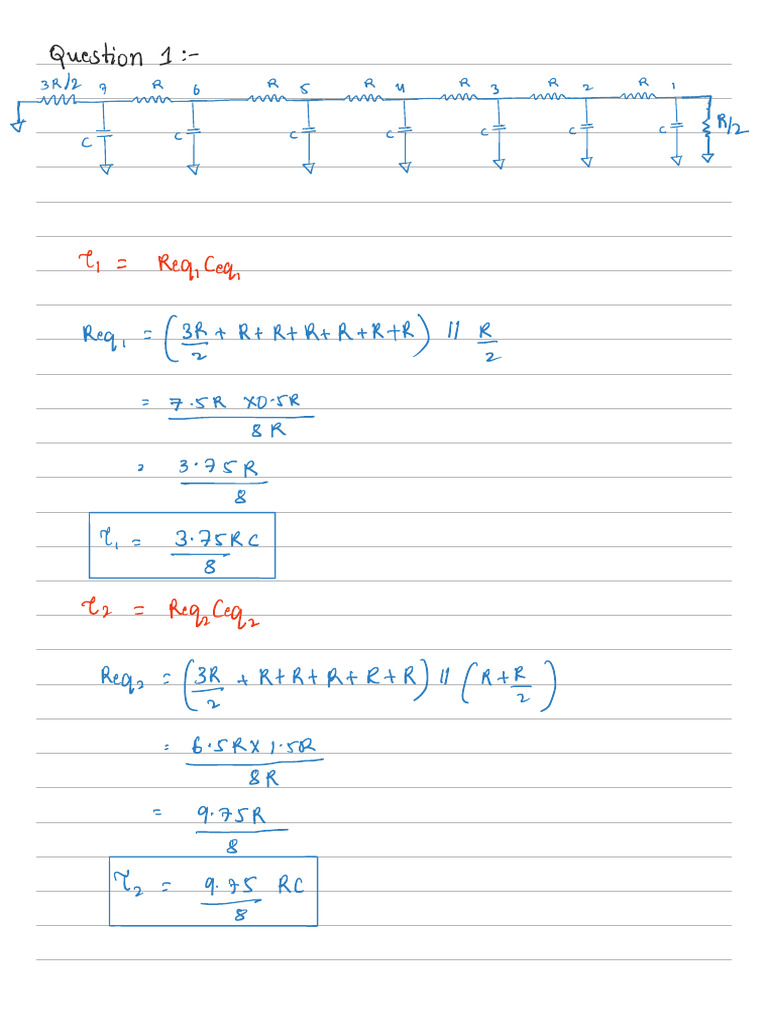 Question 1:-
3R/2 7 R 6 R 5 R 4 R 3 R 2 R 1
C C C C C C C R/2
τ₁ = Req₁Ceq₁
Req₁ = (3R/2 + R+R+R+R+R+R) // R/2
= 7.5R X0.5R / 8R
= 3.75R / 8
τ₁ = 3.75RC / 8
τ₂ = Req₂Ceq₂
Req₂ = (3R/2 + R+R+R+R+R) // (R+R/2)
= 6.5RX1.5R / 8R
= 9.75R / 8
τ₂ = 9.75/8 RC